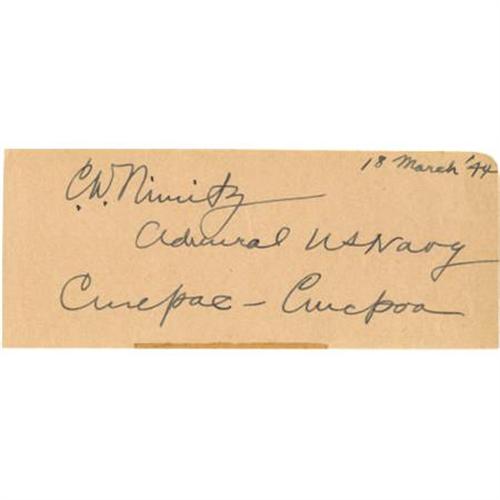 18 March '44
C.W. Nimitz
Admiral US Navy
Cincpac - Cincpoa